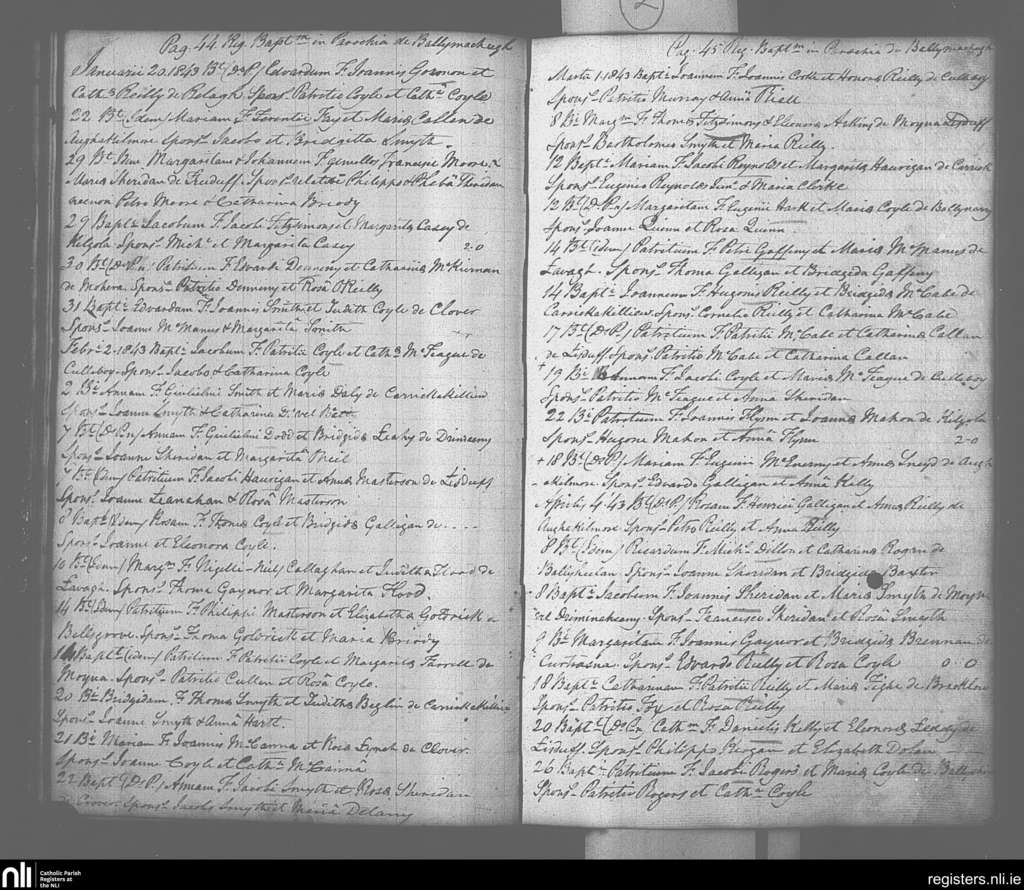 Pag. 44 Reg. Baptm in Parochia de Ballymachugh
Januarii 20. 1843 Bt (De P) Edvardum F. Joannis Gormon et
Cathe Reilly de Relagh Sponsr Patritio Coyle et Catha Coyle
22 Bt Idem Mariam F. Terentii Fay et Mariæ Callan de
Aughakilmore Sponsr Jacobo et Bridgetta Smyth
29 Bt Idem Margaritam & Johannem F. gemellos Francisci Moore &
Mariæ Sheridan de Freduff. Sponsr relative Philippo & Sheridan
necnon Petro Moore & Catharina Briody
29 Baptz Jacobum F. Jacobi Fitzsimons et Margaritæ Casey de
Kilgola Sponsr Michl et Margarita Casey 2.0
30 Bt (De P.n) Patritium F. Edvardi Denneny et Catharinæ McKiernan
de Mohera. Sponsr Patritio Denneny et Rosa O'Reilly
31 Baptz Edvardum F. Joannis Smith et Judith Coyle de Clover
Sponsr Joanne McManus & Margarita Smith
Febri 2. 1843 Baptz Jacobum F. Patritii Coyle et Cathe McTeague de
Culleboy Sponsr Jacobo & Catharina Coyle
2 Bt Annam F. Gulielmi Smith et Mariæ Daly de Carrickakillew
Sponsr Joanne Smyth & Catharina
7 Bt (De Pn) Annam F. Gulielmi Dodd et Bridgidæ Leahy de
Sponsr Joanne Sheridan et Margarita Neil
7 Bt (Idem) Patritium F. Jacobi Haurigan et Annæ Masterson de Lisduff
Sponsr Joanne Lenahan & Rosa Masterson
8 Bapt (Idem) Rosam F. Thomæ Coyle et Bridgidæ Galligan de ....
Sponsr Joanne et Eleonora Coyle.
10 Bt (Idem) Margm F. Nigelli - Neil Callaghan et Judith a Flood de
Lavagh. Sponsr Thoma Gaynor et Margarita Flood.
14 Bt (Idem) Patritium F. Philippi Masterson et Elizabetha Golrick a
Bellsgrove. Sponsr Thoma Golrick et Maria Briody
Bapt (Idem) Patritium F. Patritii Coyle et Margaritæ Farrell de
Moyna. Sponsr Patritio Cullen et Rosa Coyle.
20 Bt Bridgidam F. Thomæ Smyth et Judithæ Beglin de Carrickakillew
Sponsr Joanne Smyth & Anna Hart.
21 Bt Mariam F. Joannis McCanna et Rosæ Lynch de Clover
Sponsr Joanne Coyle et Catha McCanna
22 Bapt (De P.) Annam F. Jacobi Smyth et Rosæ Sheridan
de Sponsr Jacobo Smyth et Maria Delany
Pag. 45 Reg. Baptm in Parochia de Ballymachugh
Martii 1. 1843 Baptz Joannem F. Joannis Cooke et Honoræ Reilly de Culleboy
Sponsr Patritio Murray & Anna Reill
8 Bt Margm F. Thomæ Fitzsimons & Eleonoræ de Moyna Lisduff
Sponsr Bartholomeo Smyth et Maria Reilly.
12 Bapt Mariam F. Jacobi Reynolds et Margaritæ Haurigan de Carrick
Sponsr Eugenio Reynolds Junr & Maria Clerke
12 Bt (De Pn) Margaritam F. Eugenii Hart et Mariæ Coyle de Ballynarry
Sponsr Joanne Quinn et Rosa Quinn.
14 Bt (Idem) Patritium F. Petri Gaffeny et Mariæ McManus de
Lavagh. Sponsr Thoma Galligan et Bridgida Gaffeny
14 Baptz Joannem F. Hugonis Reilly et Bridgidæ McCabe de
Carrickakillew. Sponsr Cornelio Reilly et Catharina McCabe
17 Bt (De P.) Patritium F. Patritii McCabe et Catharinæ Callan
de Lisduff Sponsr Patritio McCabe et Catharina Callan
+ 19 Bt Annam F. Jacobi Coyle et Mariæ McTeague de Culleboy
Sponsr Patritio McTeague et Anna Sheridan
22 Bt Patritium F. Joannis Flynn et Joannæ Mahon de Kilgola
Sponsr Hugone Mahon et Anna Flynn 2-0
+ 18 Bt (De P.) Mariam F. Eugenii McEnerny et Annæ Sneyd de Augh
akilmore. Sponsr Edvardo Galligan et Anna Kelly
Aprilis 4. 43 Bt (De P.) Rosam F. Henrici Galligan et Annæ Reilly de
Aughakilmore Sponsr Petro Reilly et Anna Reilly
8 Bt (Idem) Ricardum F. Michl Dillon et Catharinæ Rogan de
Baliyheelan Sponsr Joanne Sheridan et Bridgida Baxter
8 Baptz Jacobum F. Joannis Sheridan et Mariæ Smyth de Moyna
vel Sponsr Francisco Sheridan et Rosa Smyth
9 Bt Margaritam F. Joannis Gaynor et Bridgidæ Brennan de
Curtrasna. Sponsr Edvardo Reilly et Rosa Coyle 0 0
18 Baptz Catharinam F. Patritii Reilly et Mariæ Tighe de Bracklow
Sponsr Patritio Fox et Rosa Reilly
20 Bapt (De Pn) Cathm F. Danielis Kelly et Eleonoræ Leddy de
Lisduff. Sponsr Philippo Keogan et Elizabeth Dolan
26 Baptz Patritium F. Jacobi Rogers et Mariæ Coyle de
Sponsr Patritio Rogers et Catha Coyle
2
nli Catholic Parish
Registers at
the NLI
registers.nli.ie